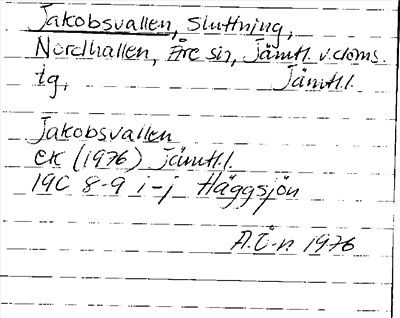 Jakobsvallen, sluttning,
Nordhallen, Åre sn, Jämtl. v. doms.
tg, Jämtl.l.
Jakobsvallen
ek (1976) Jämtl.l.
19C 8-9 i-j Häggsjön
A.Ö-n 1976